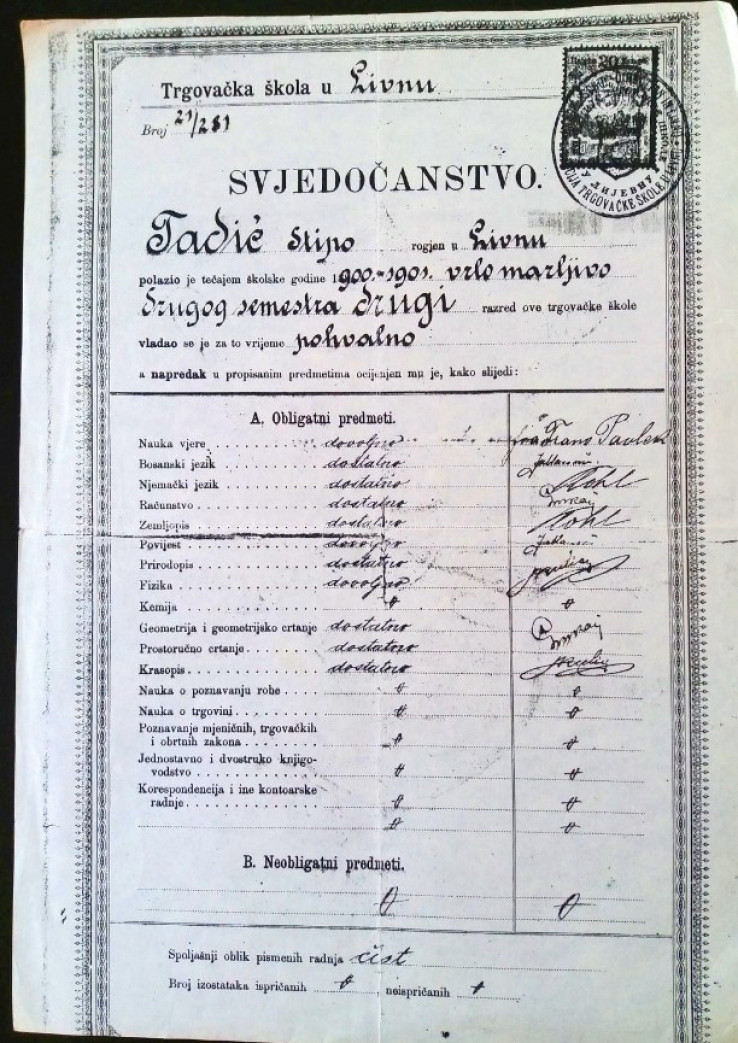 Trgovačka škola u Livnu
Broj 21/281
20
ЛИЈЕВНУ
TRGOVAČKE ŠKOLE
SVJEDOČANSTVO.
Tadić Stipo rogjen u Livnu
polazio je tečajem školske godine 1900.-1901. vrlo marljivo
drugog semestra drugi razred ove trgovačke škole
vladao se je za to vrijeme pohvalno
a napredak u propisanim predmetima ocijenjen mu je, kako slijedi:
A. Obligatni predmeti.
Nauka vjere dovoljno fra Frano
Bosanski jezik dostatno
Njemački jezik dostatno Kohl
Računstvo dostatno
Zemljopis dostatno Kohl
Povijest dovoljno
Prirodopis dostatno
Fizika dovoljno
Kemija
Geometrija i geometrijsko crtanje dostatno
Prostoručno crtanje dostatno
Krasopis dostatno
Nauka o poznavanju robe
Nauka o trgovini
Poznavanje mjeničnih, trgovačkih
i obrtnih zakona
Jednostavno i dvostruko knjigo-
vodstvo
Korespondencija i ine kontoarske
radnje
B. Neobligatni predmeti.
Spoljašnji oblik pismenih radnja čist
Broj izostataka ispričanih , neispričanih